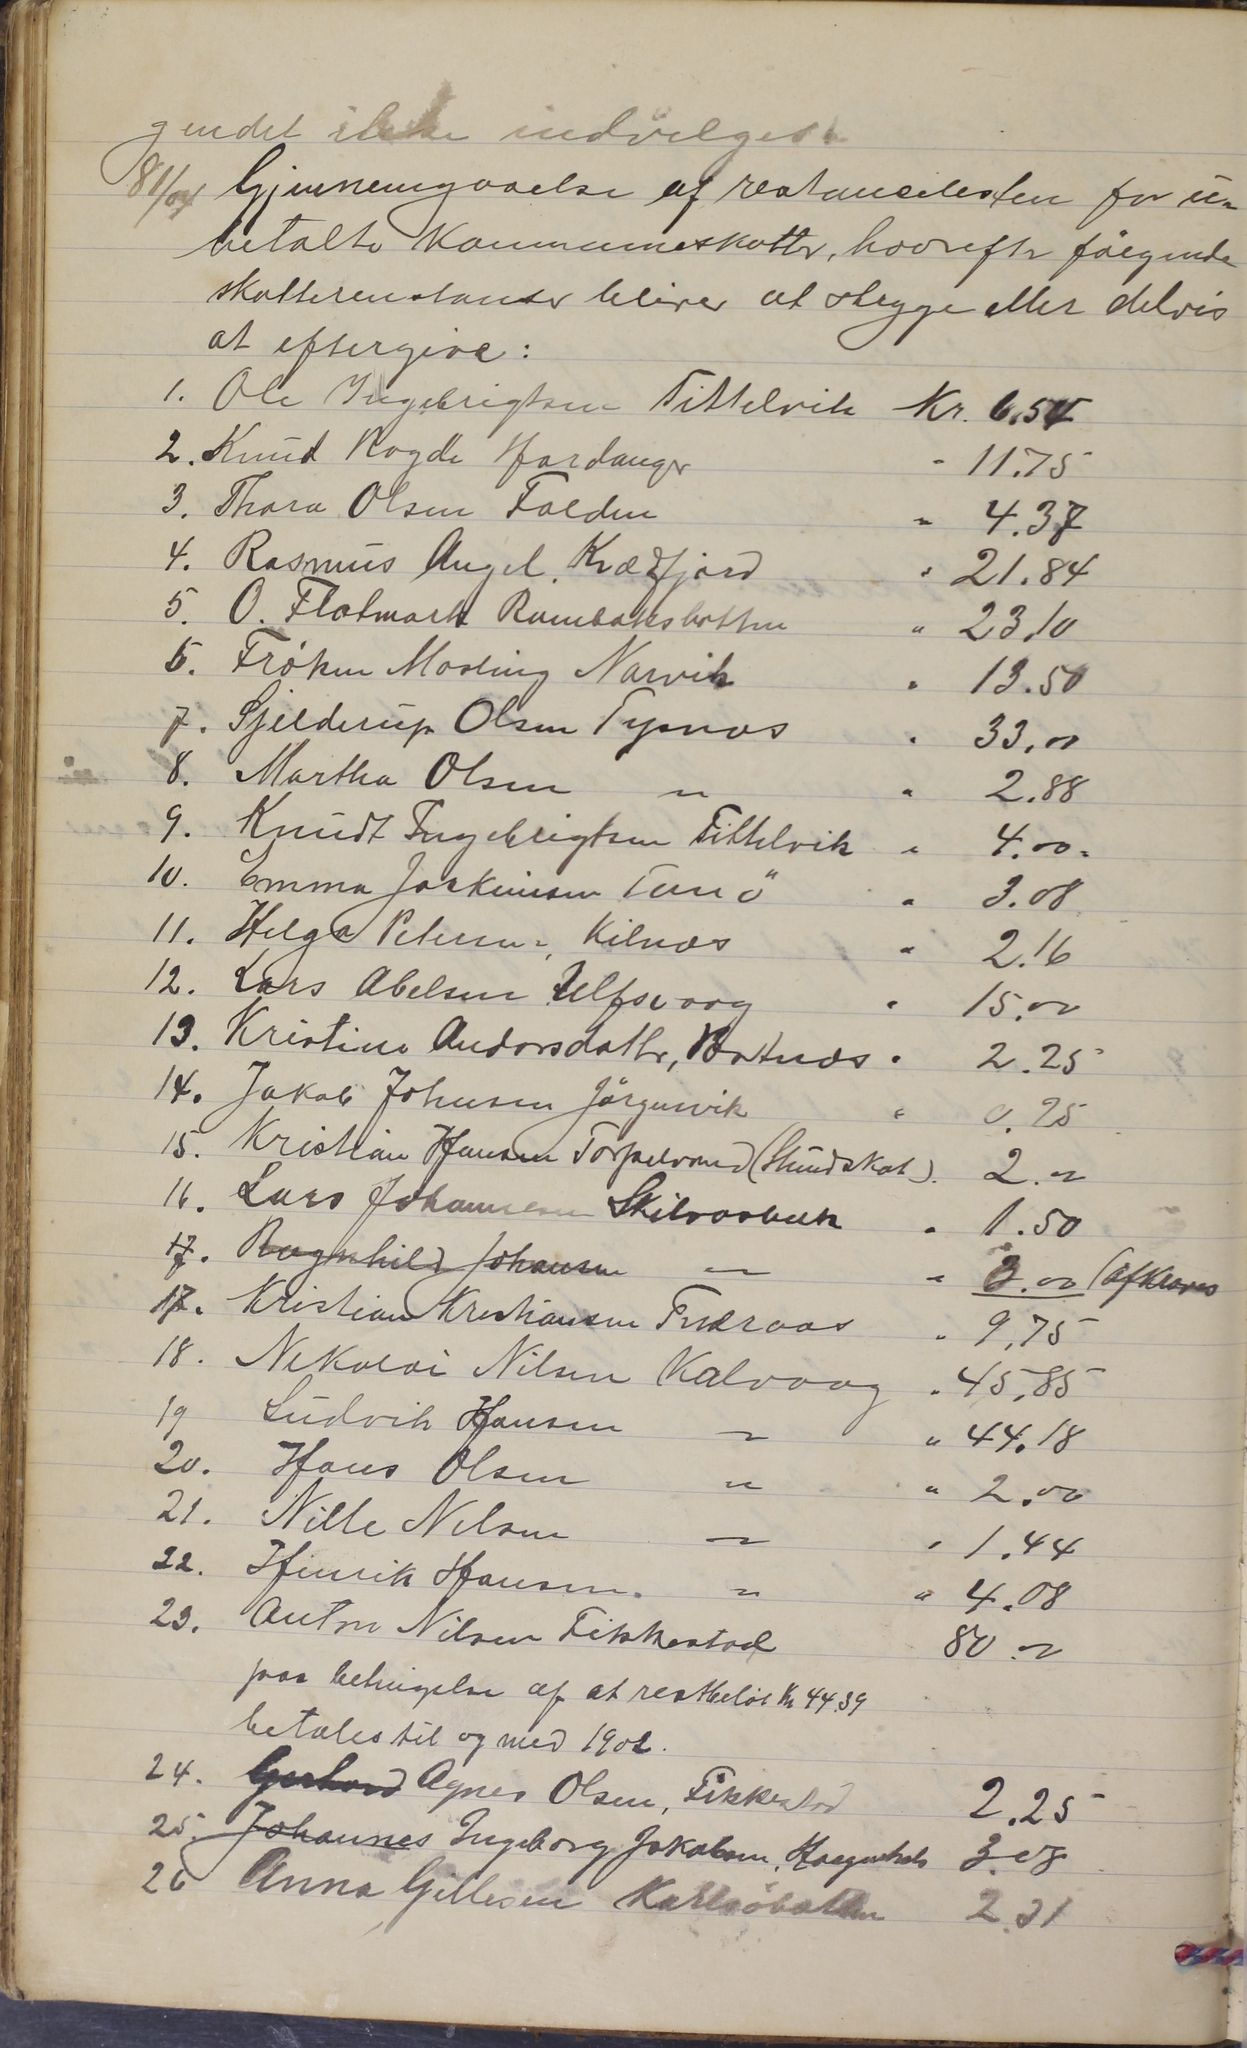 gendet ikke indvilges.
81/04 Gjennemgaaelse af restancelisten for u-
betalte kommuneskatter, hvorefter følgende
skatterestanser bliver at stryge eller delvis
at eftergive:
1. Ole Ingebrigtsen Tittelvik Kr. 6.54
2. Knud Rogde Hardanger " 11.75
3. Thora Olsen Folden " 4.37
4. Rasmus Angel. Kvædfjord " 21.84
5. O. Flatmark Rombaksbotten " 23.10
6. Frøken Mosling Narvik " 13.50
7. Sjelderup Olsen Tysnes " 33.00
8. Martha Olsen " " 2.88
9. Knudt Ingebrigtsen Tittelvik " 4.00
10. Emma Joakimsen Tranö " 3.08
11. Helga Petersen, Kilnes " 2.16
12. Lars Abelsen Ulfsvaag " 15.00
13. Kristine Andorsdatter, " 2.25
14. Jakob Johnsen Jørgensvik " 0.25
15. Kristian Hansen (Hundskat). 2.00
16. Lars Johannesen Skilvasbakk " 1.50
17. Ragnhild Johansen " " 3.00 (afkræves
17. Kristian Kristiansen " 9.75
18. Nikolai Nilsen Kalvaag " 45.85
19 Ludvik Hansen " " 44.18
20. Hans Olsen " " 2.00
21. Nille Nilsen " " 1.44
22. Henrik Hansen. " " 4.08
23. Anton Nilsen Fikkestad 80.00
paa betingelse af at restbeløb Kr 44.39
betales til og med 1902.
24. Gerhard Agnes Olsen, Fikkestad 2.25
25. Johannes Ingeborg Jakobsen, 3.08
26 Anna Gillesen Karlsöbotten 2.31